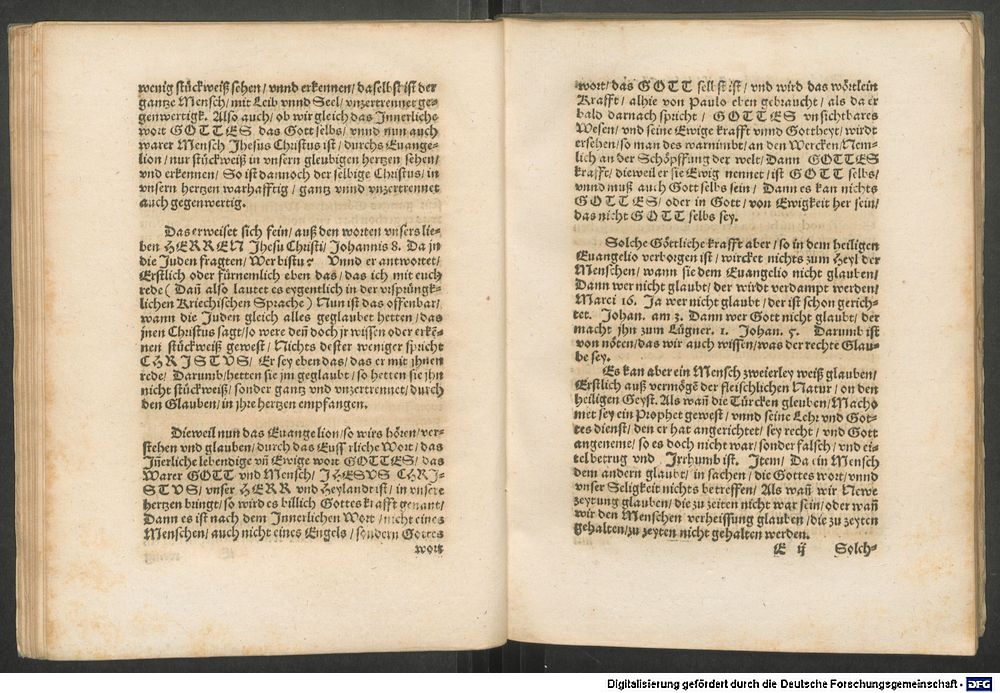 wenig stückweiß sehen/ vnnd erkennen/ daselbst ist der
gantze Mensch/ mit Leib vnnd Seel/ vnzertrennet ge-
genwertigk. Also auch/ ob wir gleich das Innerliche
wort GOTTES das Gott selbs/ vnnd nun auch
warer Mensch Jhesus Christus ist/ durchs Euange-
lion/ nur stückweiß in vnsern gleubigen hertzen sehen/
vnd erkennen/ So ist dannoch der selbige Christus/ in
vnsern hertzen warhafftig/ gantz vnnd vnzertrennet
auch gegenwertig.
Das erweiset sich fein/ auß den worten vnsers lie-
ben HERREN Jhesu Christi/ Johannis 8. Da jn
die Juden fragten/ Wer bistu? Vnnd er antwortet/
Erstlich oder fürnemlich eben das/ das ich mit euch
rede (Dañ also lautet es eygentlich in der vrsprüngk-
lichen Kriechischen Sprache) Nun ist das offenbar/
wann die Juden gleich alles geglaubet hetten/ das
jnen Christus sagt/ so were deñ doch jr wissen oder erkẽ-
nen stückweiß gewest/ Nichts dester weniger spricht
CHRISTVS/ Er sey eben das/ das er mit jhnen
rede/ Darumb/ hetten sie jm geglaubt/ so hetten sie jhn
nicht stückweiß/ sonder gantz vnd vnzertrennet/ durch
den Glauben/ in jhre hertzen empfangen.
Dieweil nun das Euangelion/ so wirs hören/ ver-
stehen vnd glauben/ durch das Eusserliche Wort/ das
Iñerliche lebendige vñ Ewige wort GOTTES/ das
Warer GOTT vnd Mensch/ JHESVS CHRI-
STVS/ vnser HERR vnd Heylandt ist/ in vnsere
hertzen bringt/ so wird es billich Gottes krafft genant/
Dann es ist nach dem Innerlichen Wort/ nicht eines
Menschen/ auch nicht eines Engels/ sondern Gottes
wort
wort/ das GOTT selbst ist/ vnd wird das wörtlein
Krafft/ alhie von Paulo eben gebraucht/ als da er
bald darnach spricht/ GOTTES vnsichtbares
Wesen/ vnd seine Ewige krafft vnnd Gottheyt/ würdt
ersehen/ so man des warnimbt/ an den Wercken/ Nem-
lich an der Schöpffung der welt/ Dann GOTTES
krafft/ dieweil er sie Ewig nennet/ ist GOTT selbs/
vnnd muß auch Gott selbs sein/ Dann es kan nichts
GOTTES/ oder in Gott/ von Ewigkeit her sein/
das nicht GOTT selbs sey.
Solche Göttliche krafft aber/ so in dem heiligen
Euangelio verborgen ist/ wircket nichts zum Heyl der
Menschen/ wann sie dem Euangelio nicht glauben/
Dann wer nicht glaubt/ der würdt verdampt werden/
Marci 16. Ja wer nicht glaubt/ der ist schon gerich-
tet. Johan. am 3. Dann wer Gott nicht glaubt/ der
macht jhn zum Lügner. 1. Johan. 5. Darumb ist
von nöten/ das wir auch wissen/ was der rechte Glau-
be sey.
Es kan aber ein Mensch zweierley weiß glauben/
Erstlich auß vermögẽ der fleischlichen Natur/ on den
heiligen Geyst. Als wañ die Türcken gleuben/ Macho
met sey ein Prophet gewest/ vnnd seine Lehr vnd Got-
tes dienst/ den er hat angerichtet/ sey recht/ vnd Gott
angeneme/ so es doch nicht war/ sonder falsch/ vnd ei-
tel betrug vnd Irrhumb ist. Item/ Da ein Mensch
dem andern glaubt/ in sachen/ die Gottes wort/ vnnd
vnser Seligkeit nichts betreffen/ Als wañ wir Newe
zeytung glauben/ die zu zeiten nicht war sein/ oder wañ
wir den Menschen verheissung glauben/ die zu zeyten
gehalten/ zu zeyten nicht gehalten werden.
E ij Solch-
Digitalisierung gefördert durch die Deutsche Forschungsgemeinschaft - DFG